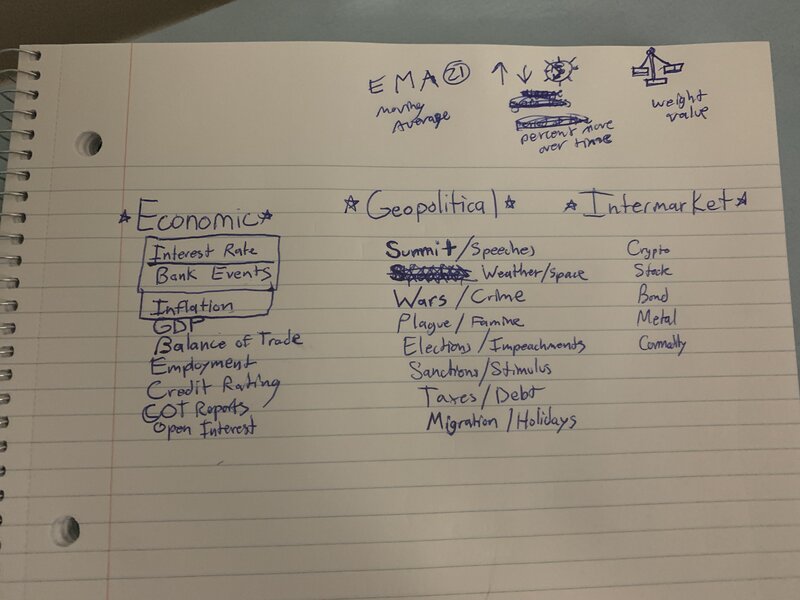 EMA 21
moving
Average
$
percent move
over time
weight
value
Economic
Interest Rate
Bank Events
Inflation
GDP
Balance of Trade
Employment
Credit Rating
COT Reports
Open Interest
Geopolitical
Summit/Speeches
Weather/Space
Wars/Crime
Plague/Famine
Elections/Impeachments
Sanctions/Stimulus
Taxes/Debt
Migration/Holidays
Intermarket
Crypto
Stock
Bond
Metal